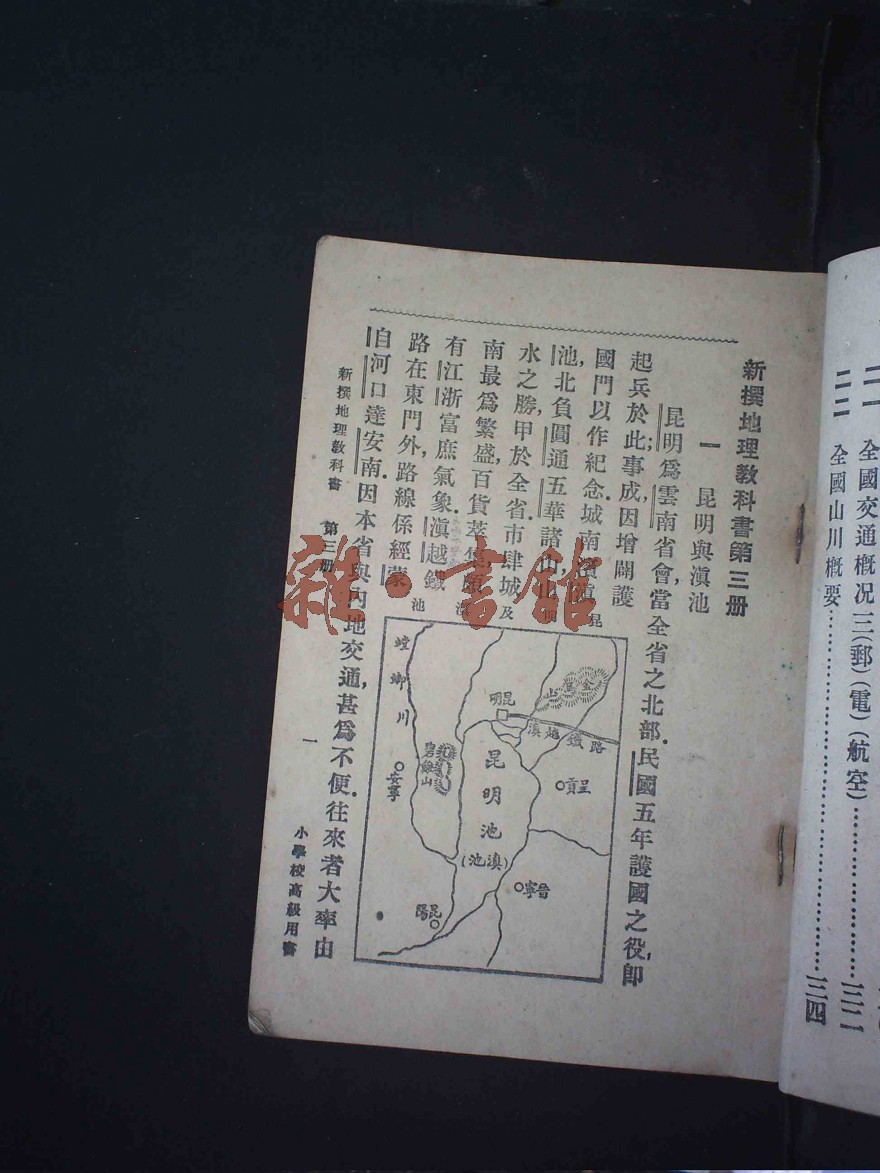 二一 全國交通概况三(郵)(電)(航空)……三二
二二 全國山川概要……三四
新撰地理教科書第三册
一 昆明與滇池
昆明爲雲南省會,當全省之北部.民國五年護國之役,即
起兵於此;事成,因增闢護
國門以作紀念.城南濱滇
池,北負圓通五華諸山,山
水之勝,甲於全省.市肆城
南最爲繁盛,百貨萃集,頗
有江浙富庶氣象.滇越鐵
路在東門外,路線係經蒙
自河口達安南.因本省與內地交通,甚爲不便.往來者大率由
昆明及滇池
金馬山
昆明
滇越鐵路
呈貢
昆明池
(滇池)
晉寧
碧雞山
螳螂川
安寧
昆陽
新撰地理教科書 第三册 一 小學校高級用書
雜·書館